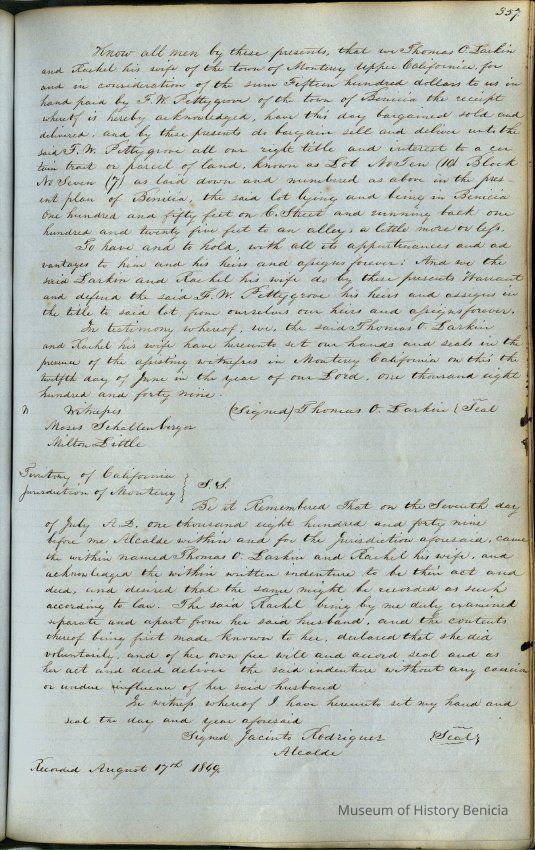 357
Know all men by these presents, that we Thomas O. Larkin
and Rachel his wife of the town of Monterey Upper California, for
and in consideration of the sum Fifteen hundred dollars to us in
hand paid by F. W. Pettygrove of the town of Benicia the receipt
whereof is hereby acknowledged, have this day bargained sold and
delivered, and by these presents do bargain sell and deliver unto the
said F. W. Pettygrove all our right title and interest to a cer
tain tract or parcel of land, known as Lot No Ten (10) Block
No Seven (7) as laid down and numbered as above in the pres
ent plan of Benicia, the said lot lying and being in Benicia
One hundred and fifty feet on C. Street and running back one
hundred and twenty five feet to an alley, a little more or less.
To have and to hold, with all its appurtenances and ad
vantages to him and his heirs and assigns forever; And we the
said Larkin and Rachel his wife do by these presents Warrant
and defend the said F. W. Pettygrove his heirs and assigns in
the title to said lot, from ourselves our heirs and assigns forever.
In testimony whereof, we, the said Thomas O. Larkin
and Rachel his wife have hereunto set our hands and seals in the
presence of the assisting witnesses in Monterey California on this the
twelfth day of June in the year of our Lord, one thousand eight
hundred and forty nine.
Witnesses (Signed) Thomas O. Larkin {Seal
Moses Schallenberger
Milton Little
Territory of California }
Jurisdiction of Monterey } S.S.
Be it Remembered That on the Seventh day
of July A.D. one thousand eight hundred and forty nine
before me Alcalde within and for the Jurisdiction aforesaid, came
the within named Thomas O. Larkin and Rachel his wife, and
acknowledged the within written indenture to be their act and
deed, and desired that the same might be recorded as such
according to law. The said Rachel being by me duly examined
separate and apart from her said husband, and the contents
thereof being first made known to her, declared that she did
voluntarily, and of her own free will and accord seal and as
her act and deed deliver the said indenture without any coercion
or undue influence of her said husband
In witness whereof I have hereunto set my hand and
seal the day and year aforesaid
Signed Jacinto Rodriguez {Seal}
Alcalde
Recorded August 17th 1849.
Museum of History Benicia